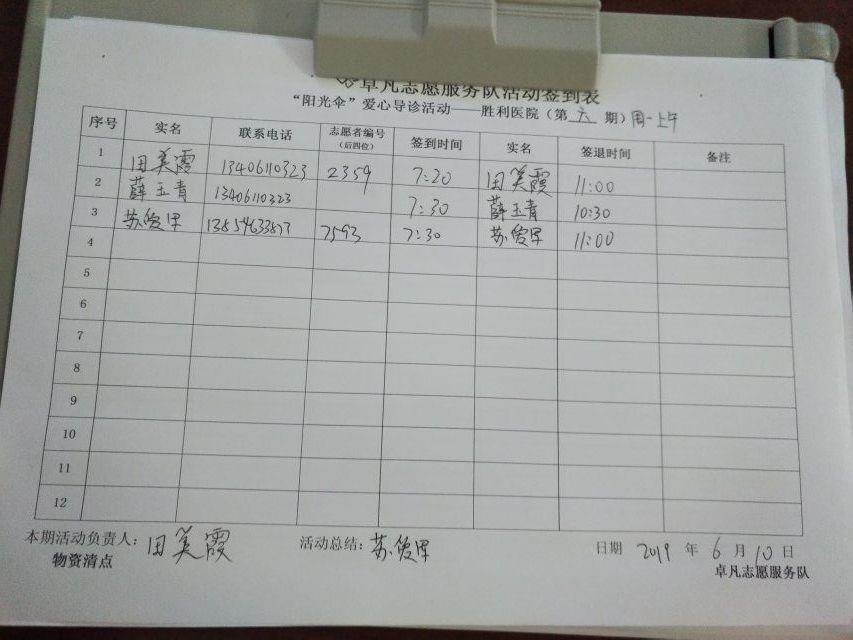 卓凡志愿服务队活动签到表
“阳光伞”爱心导诊活动——胜利医院（第 六 期）周一上午
序号 实名 联系电话 志愿者编号（后四位） 签到时间 实名 签退时间 备注
1 田美霞 13406110323 2359 7:20 田美霞 11:00
2 薛玉青 13406110323 7:30 薛玉青 10:30
3 苏俊早 13854633877 7593 7:30 苏俊早 11:00
4
5
6
7
8
9
10
11
12
本期活动负责人：田美霞 活动总结：苏俊早 日期 2019 年 6 月 10 日
物资清点 卓凡志愿服务队